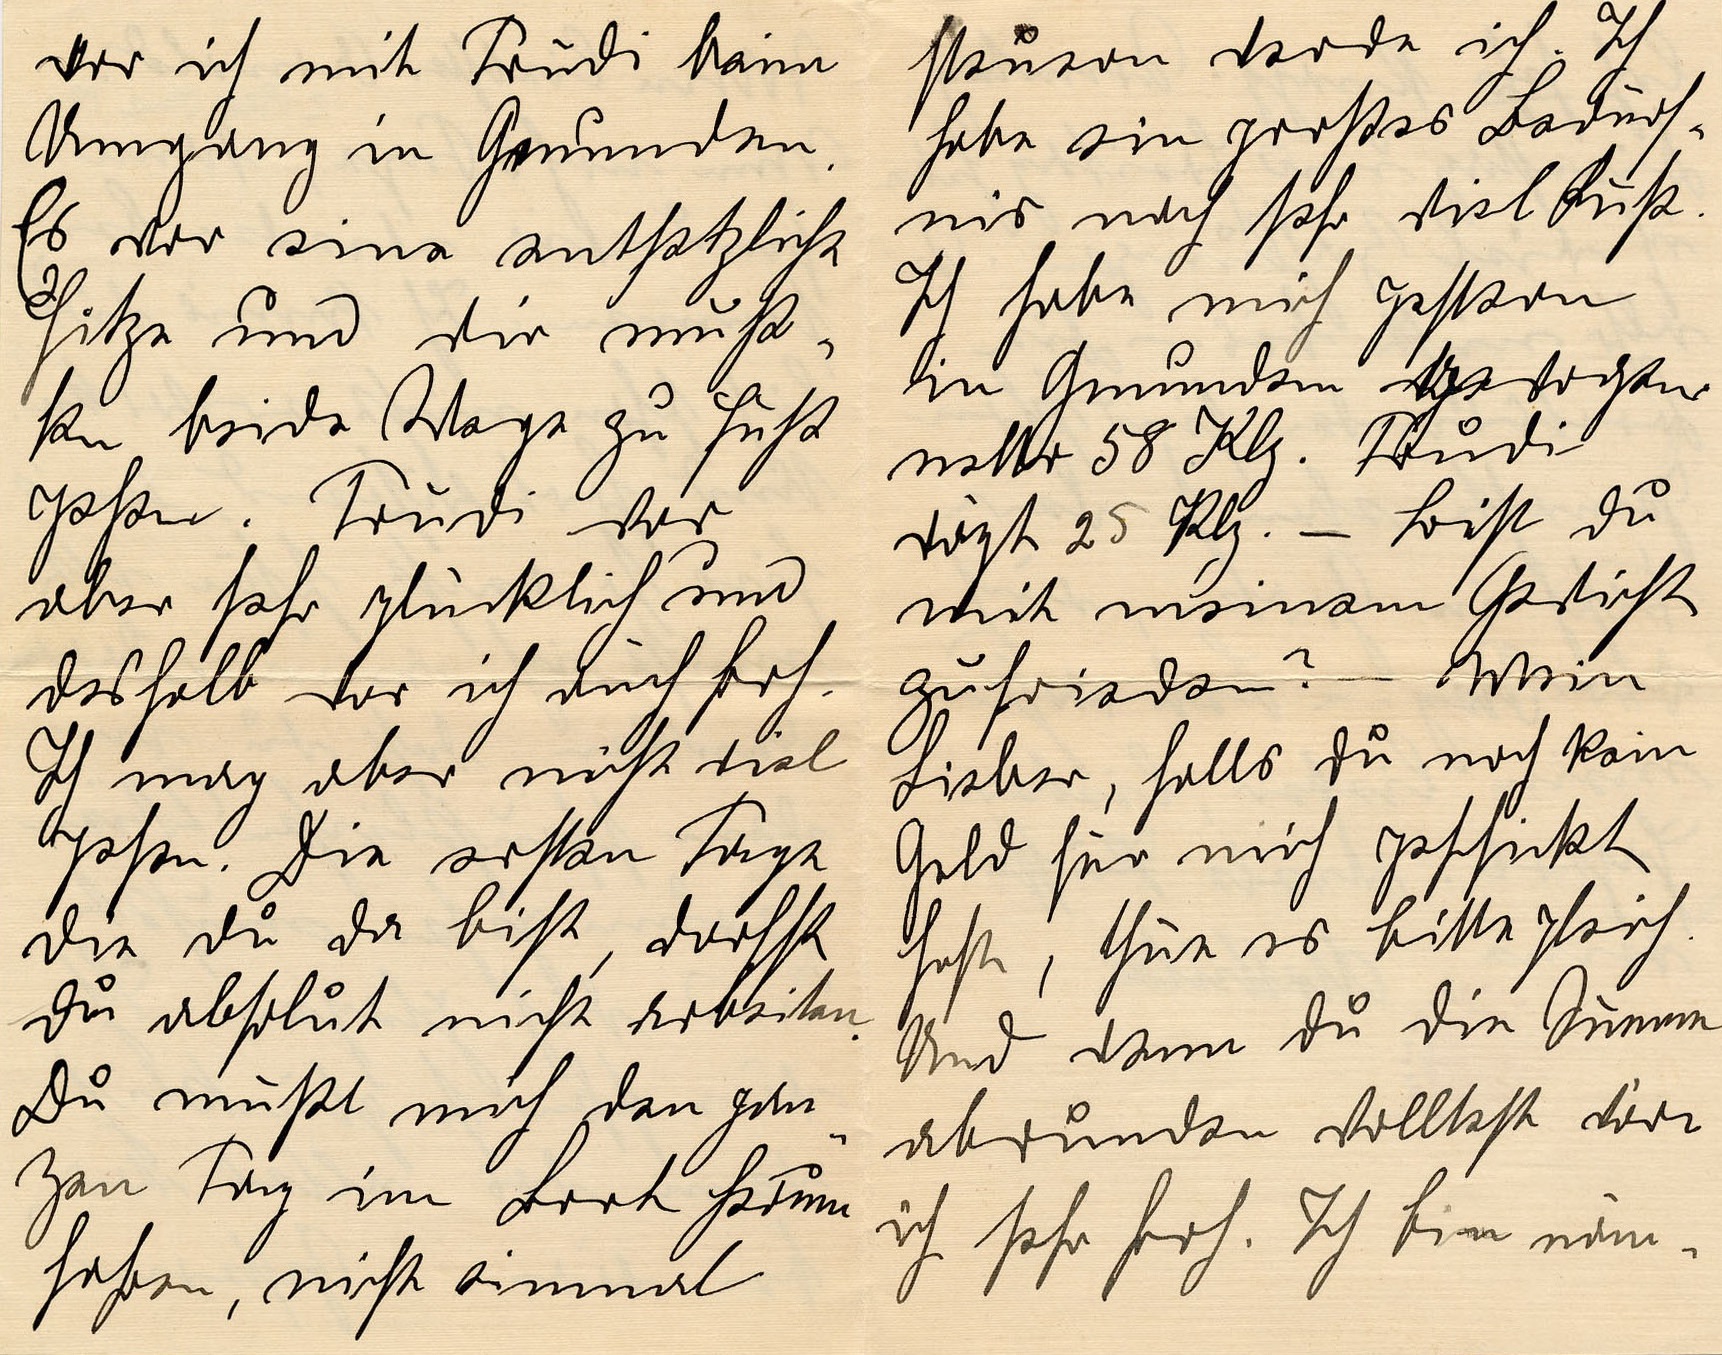 war ich mit Trudi beim
Umgang in Gmunden.
Es war eine entsetzliche
Hitze und wir muß-
ten beide Wege zu Fuß
gehen. Trudi war
aber sehr glücklich und
deshalb war ich auch froh.
Ich mag aber nicht viel
gehen. Die ersten Tage
die du da bist, darfst
du absolut nicht arbeiten.
Du mußt mich den gan-
zen Tag im Boot herum
fahren, nicht einmal
steuern werde ich. Ich
habe ein großes Bedürf-
nis nach sehr viel Ruhe.
Ich habe mich gestern
in Gmunden gewogen
netto 58 Klg. Trudi
wiegt 25 Klg. – Bist du
mit meinem Gewicht
zufrieden? – Mein
Lieber, falls du noch kein
Geld für mich geschickt
hast, thue es bitte gleich.
Und wenn du die Summe
abrunden wolltest wäre
ich sehr froh. Ich bin näm-